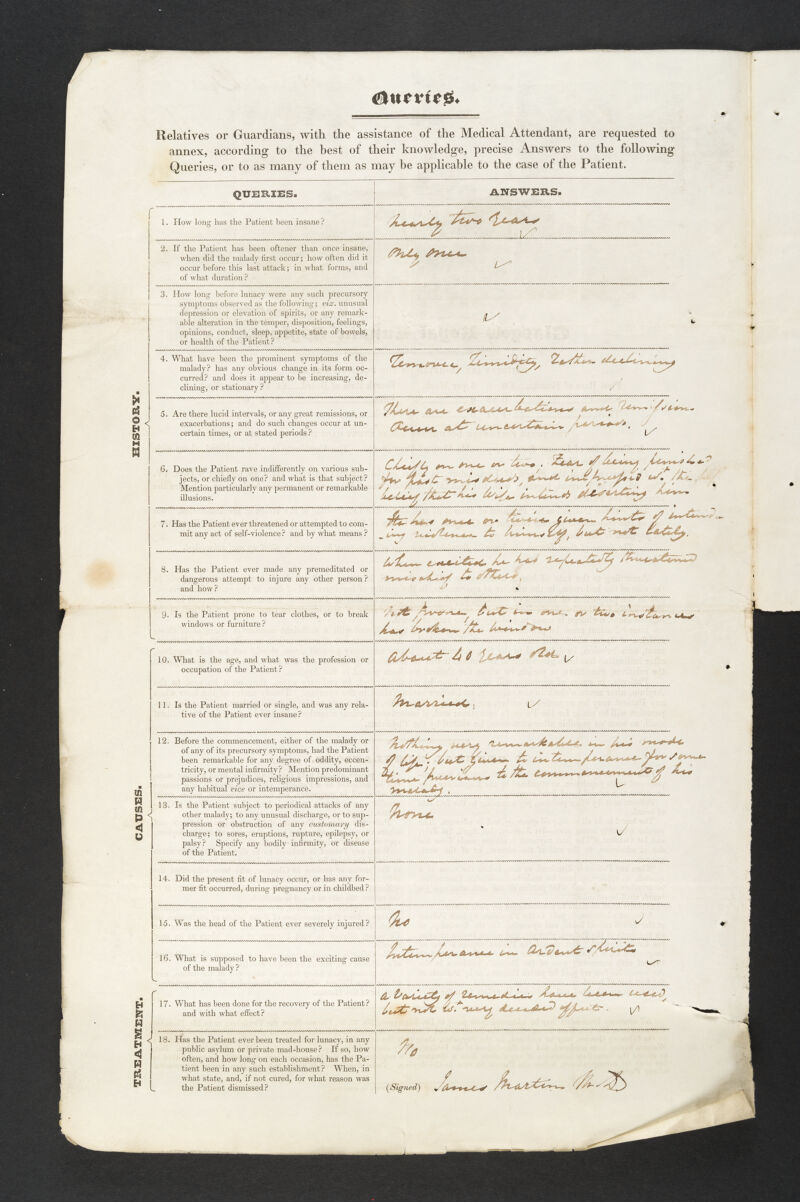 Queries.
Relatives or Guardians, with the assistance of the Medical Attendant, are requested to
annex, according to the best of their knowledge, precise Answers to the following
Queries, or to as many of them as may be applicable to the case of the Patient.
QUERIES.
ANSWERS.
HISTORY.
1. How long has the Patient been insane?
nearly two Years
2. If the Patient has been oftener than once insane,
when did the malady first occur; how often did it
occur before this last attack; in what forms, and
of what duration?
Only Once
3. How long before lunacy were any such precursory
symptoms observed as the following; viz. unusual
depression or elevation of spirits, or any remark-
able alteration in the temper, disposition, feelings,
opinions, conduct, sleep, appetite, state of bowels,
or health of the Patient?
4. What have been the prominent symptoms of the
malady? has any obvious change in its form oc-
curred? and does it appear to be increasing, de-
clining, or stationary?
Timidity, Rather declining
5. Are there lucid intervals, or any great remissions, or
exacerbations; and do such changes occur at un-
certain times, or at stated periods?
There are exacerbations and remissions
Occur at uncertain periods.
6. Does the Patient rave indifferently on various sub-
jects, or chiefly on one? and what is that subject?
Mention particularly any permanent or remarkable
illusions.
Chiefly on one or two. Fear of being punished
for past misdeeds, and impressed wt. the
belief that his Wife intends deserting him
7. Has the Patient ever threatened or attempted to com-
mit any act of self-violence? and by what means?
He has once or twice given hints of intend-
ing violence to himself, but not lately.
8. Has the Patient ever made any premeditated or
dangerous attempt to injure any other person?
and how?
When excited he has repeatedly threatened
mischief to others.
9. Is the Patient prone to tear clothes, or to break
windows or furniture?
Not prone, but in one or two instances
has broken the window
CAUSES.
10. What is the age, and what was the profession or
occupation of the Patient?
About 40 years old
11. Is the Patient married or single, and was any rela-
tive of the Patient ever insane?
Married.
12. Before the commencement, either of the malady or
of any of its precursory symptoms, had the Patient
been remarkable for any degree of oddity, eccen-
tricity, or mental infirmity? Mention predominant
passions or prejudices, religious impressions, and
any habitual vice or intemperance.
Nothing very remarkable in his mode
of life, but given to intemperance for some
time previous to the commencement of his
malady.
13. Is the Patient subject to periodical attacks of any
other malady; to any unusual discharge, or to sup-
pression or obstruction of any customary dis-
charge; to sores, eruptions, rupture, epilepsy, or
palsy? Specify any bodily infirmity, or disease
of the Patient.
None
14. Did the present fit of lunacy occur, or has any for-
mer fit occurred, during pregnancy or in childbed?
15. Was the head of the Patient ever severely injured?
No
16. What is supposed to have been the exciting cause
of the malady?
Intemperance in Ardent spirits
TREATMENT.
17. What has been done for the recovery of the Patient?
and with what effect?
a Variety of remedies have been used,
but not wt. very decided effect.
18. Has the Patient ever been treated for lunacy, in any
public asylum or private mad-house? If so, how
often, and how long on each occasion, has the Pa-
tient been in any such establishment? When, in
what state, and, if not cured, for what reason was
the Patient dismissed?
No
(Signed) James Martin M.D